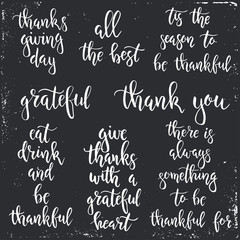 thanks
giving
day
all
the best
'tis the
season to
be thankful
grateful
thank you
eat
drink
and
be
thankful
give
thanks
with a
grateful
heart
there is
always
something
to be
thankful for